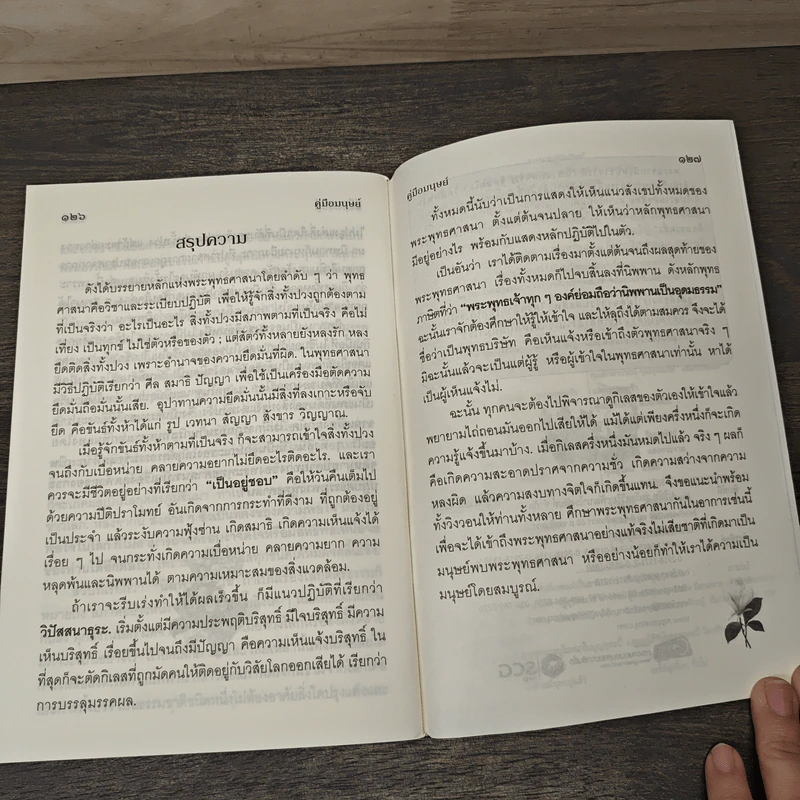 ๑๒๖
คู่มือมนุษย์
สรุปความ
ดังได้บรรยายหลักแห่งพระพุทธศาสนาโดยลำดับ ๆ ว่า พุทธ
ศาสนาคือวิชาและระเบียบปฏิบัติ เพื่อให้รู้จักสิ่งทั้งปวงถูกต้องตาม
ที่เป็นจริงว่า อะไรเป็นอะไร สิ่งทั้งปวงมีสภาพตามที่เป็นจริง คือไม่
เที่ยง เป็นทุกข์ ไม่ใช่ตัวหรือของตัว ; แต่สัตว์ทั้งหลายยังหลงรัก หลง
ยึดติดสิ่งทั้งปวง เพราะอำนาจของความยึดมั่นที่ผิด. ในพุทธศาสนา
มีวิธีปฏิบัติเรียกว่า ศีล สมาธิ ปัญญา เพื่อใช้เป็นเครื่องมือตัดความ
ยึดมั่นถือมั่นนั้นเสีย. อุปาทานความยึดมั่นนั้นมีสิ่งที่ลงเกาะหรือจับ
ยึด คือขันธ์ทั้งห้าได้แก่ รูป เวทนา สัญญา สังขาร วิญญาณ.
เมื่อรู้จักขันธ์ทั้งห้าตามที่เป็นจริง ก็จะสามารถเข้าใจสิ่งทั้งปวง
จนถึงกับเบื่อหน่าย คลายความอยากไม่ยึดอะไรติดอะไร. และเรา
ควรจะมีชีวิตอยู่อย่างที่เรียกว่า “เป็นอยู่ชอบ” คือให้วันคืนเต็มไป
ด้วยความปีติปราโมทย์ อันเกิดจากการกระทำที่ดีงาม ที่ถูกต้องอยู่
เป็นประจำ แล้วระงับความฟุ้งซ่าน เกิดสมาธิ เกิดความเห็นแจ้งได้
เรื่อย ๆ ไป จนกระทั่งเกิดความเบื่อหน่าย คลายความยาก ความ
หลุดพ้นและนิพพานได้ ตามความเหมาะสมของสิ่งแวดล้อม.
ถ้าเราจะรีบเร่งทำให้ได้ผลเร็วขึ้น ก็มีแนวปฏิบัติที่เรียกว่า
วิปัสสนาธุระ. เริ่มตั้งแต่มีความประพฤติบริสุทธิ์ มีใจบริสุทธิ์ มีความ
เห็นบริสุทธิ์ เรื่อยขึ้นไปจนถึงมีปัญญา คือความเห็นแจ้งบริสุทธิ์ ใน
ที่สุดก็จะตัดกิเลสที่ผูกมัดคนให้ติดอยู่กับวิสัยโลกออกเสียได้ เรียกว่า
การบรรลุมรรคผล.
คู่มือมนุษย์
๑๒๗
ทั้งหมดนี้นับว่าเป็นการแสดงให้เห็นแนวสังเขปทั้งหมดของ
พระพุทธศาสนา ตั้งแต่ต้นจนปลาย ให้เห็นว่าหลักพุทธศาสนา
มีอยู่อย่างไร พร้อมกับแสดงหลักปฏิบัติไปในตัว.
เป็นอันว่า เราได้ติดตามเรื่องมาตั้งแต่ต้นจนถึงผลสุดท้ายของ
พระพุทธศาสนา เรื่องทั้งหมดก็ไปจบสิ้นลงที่นิพพาน ดังหลักพุทธ
ภาษิตที่ว่า “พระพุทธเจ้าทุก ๆ องค์ย่อมถือว่านิพพานเป็นอุดมธรรม”
ฉะนั้นเราจักต้องศึกษาให้รู้ให้เข้าใจ และให้ลุถึงได้ตามสมควร จึงจะได้
ชื่อว่าเป็นพุทธบริษัท คือเห็นแจ้งหรือเข้าถึงตัวพุทธศาสนาจริง ๆ
มิฉะนั้นแล้วจะเป็นแต่ผู้รู้ หรือผู้เข้าใจในพุทธศาสนาเท่านั้น หาได้
เป็นผู้เห็นแจ้งไม่.
ฉะนั้น ทุกคนจะต้องไปพิจารณาดูกิเลสของตัวเองให้เข้าใจแล้ว
พยายามไถ่ถอนมันออกไปเสียให้ได้ แม้ได้แต่เพียงครึ่งหนึ่งก็จะเกิด
ความรู้แจ้งขึ้นมาบ้าง. เมื่อกิเลสครึ่งหนึ่งมันหมดไปแล้ว จริง ๆ ผลก็
คือเกิดความสะอาดปราศจากความชั่ว เกิดความสว่างจากความ
หลงผิด แล้วความสงบทางจิตใจก็เกิดขึ้นแทน. จึงขอแนะนำพร้อม
ทั้งวิงวอนให้ท่านทั้งหลาย ศึกษาพระพุทธศาสนากันในอาการเช่นนี้
เพื่อจะได้เข้าถึงพระพุทธศาสนาอย่างแท้จริงไม่เสียชาติที่เกิดมาเป็น
มนุษย์พบพระพุทธศาสนา หรืออย่างน้อยก็ทำให้เราได้ความเป็น
มนุษย์โดยสมบูรณ์.